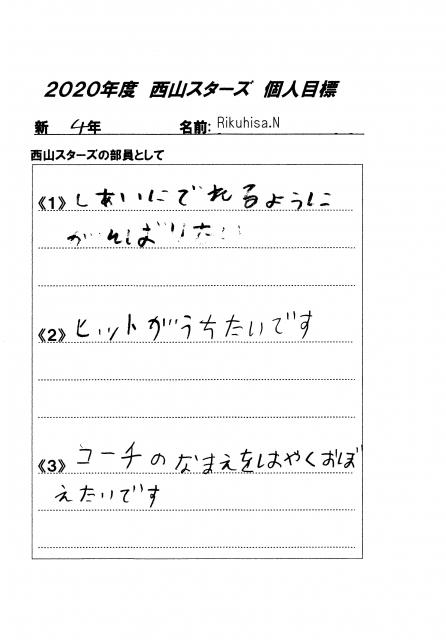 2020年度 西山スターズ 個人目標
新 4年 名前: Rikuhisa.N
西山スターズの部員として
《1》しあいにでれるように
がんばりたい
《2》ヒットがうちたいです
《3》コーチのなまえをはやくおぼ
えたいです